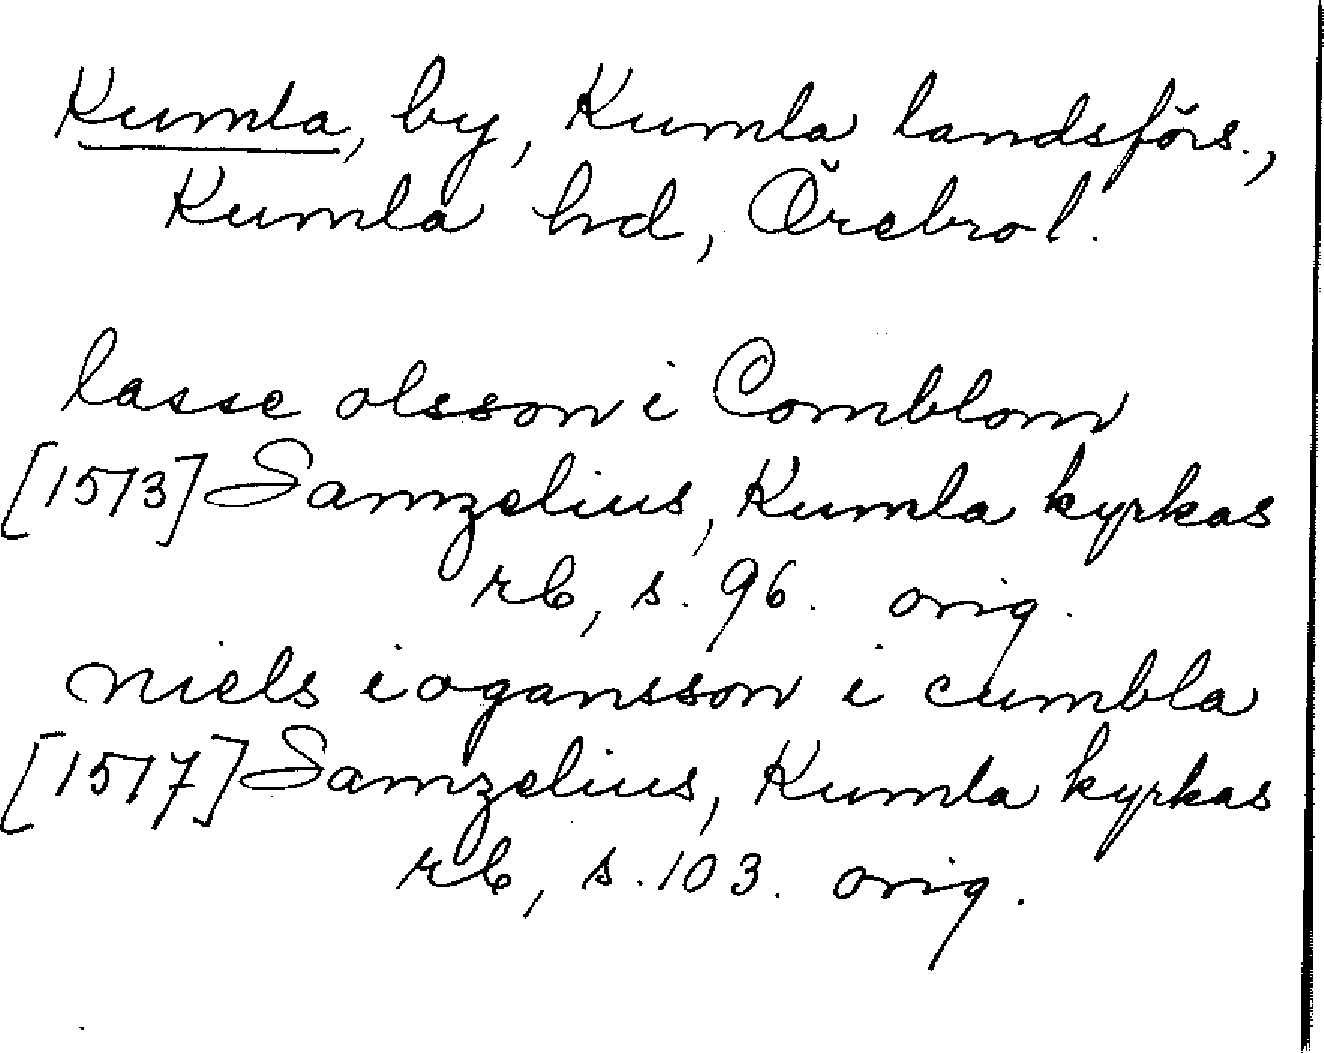 Kumla, by, Kumla landsförs.,
Kumla hd, Örebro l.
lasse olsson i Comblom
[1513] Samzelius, Kumla kyrkas
rb, s. 96. orig.
niels iogansson i cumbla
[1517] Samzelius, Kumla kyrkas
rb, s. 103. orig.